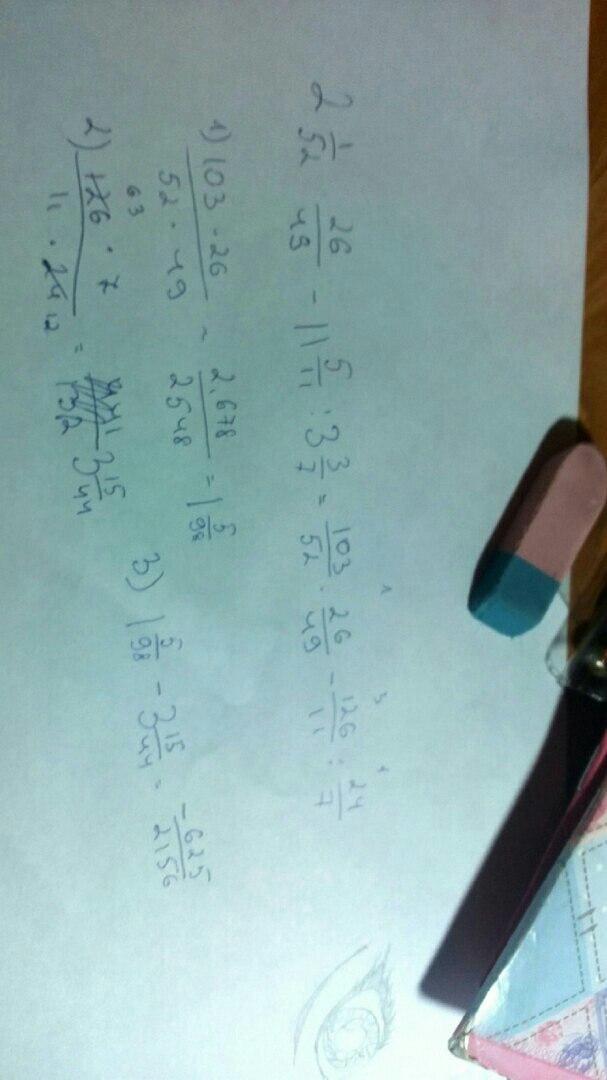 2 1/52 · 26/49 - 11 5/11 : 3 3/7 = 103/52 · 26/49 - 126/11 : 24/7
1) 103 · 26 / 52 · 49 = 2.678/2548 = 1 5/98
2) 126 · 7 / 11 · 24 = 3 15/44
63
12
132
3) 1 5/98 - 3 15/44 = -625/2156